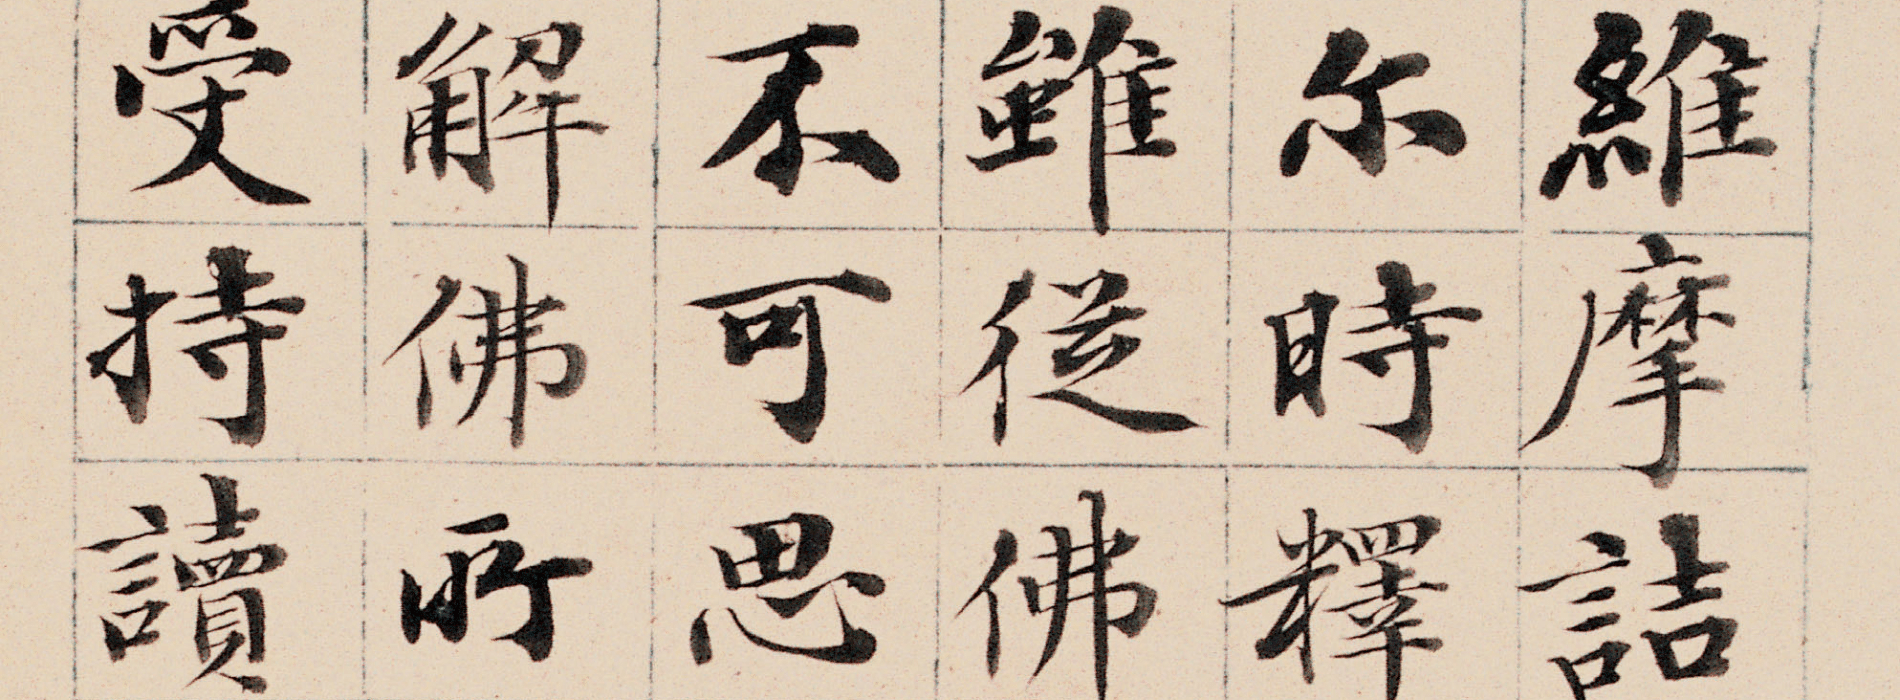 維摩詰
尔時釋
雖從佛
不可思
解佛所
受持讀